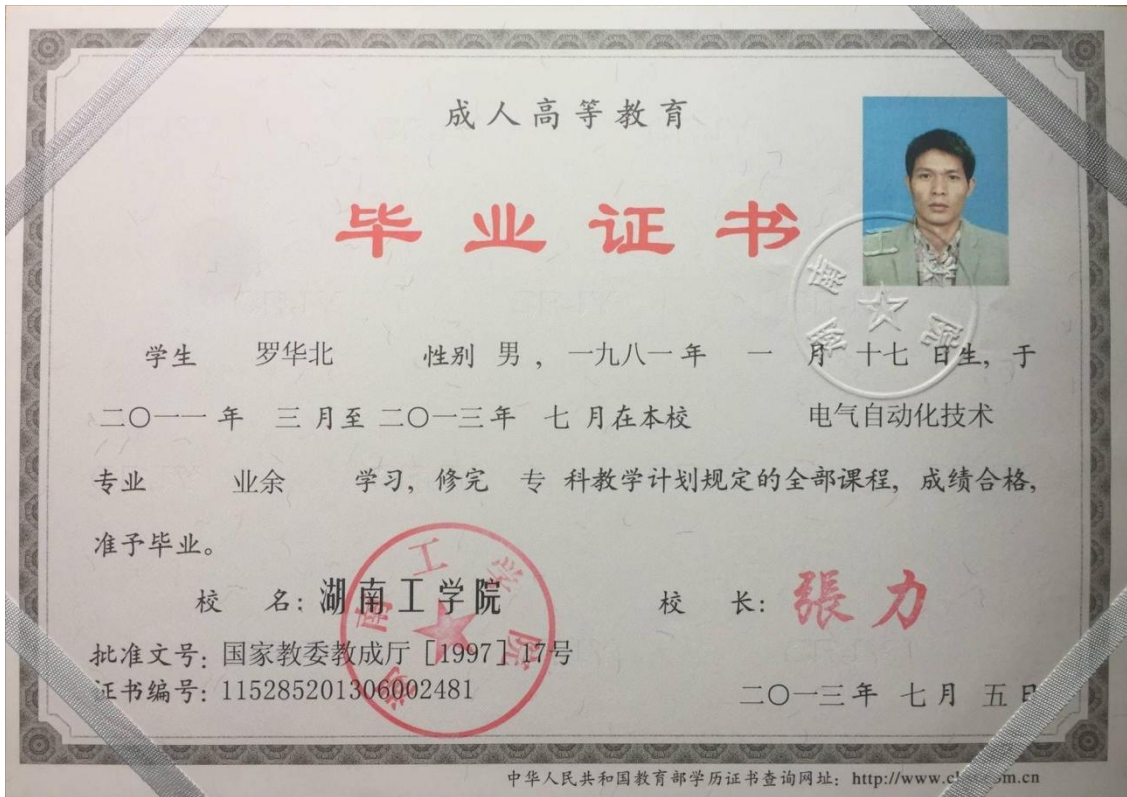 成人高等教育
毕业证书
学生 罗华北 性别 男，一九八一年 一 月 十七 日生，于
二〇一一年 三 月至二〇一三年 七 月在本校 电气自动化技术
专业 业余 学习，修完 专 科教学计划规定的全部课程，成绩合格，
准予毕业。
校 名：湖南工学院 校 长：張力
批准文号：国家教委教成厅［1997］17号
证书编号：115285201306002481
二〇一三年 七月 五日
中华人民共和国教育部学历证书查询网址：
湖南工学院
湖南工学院